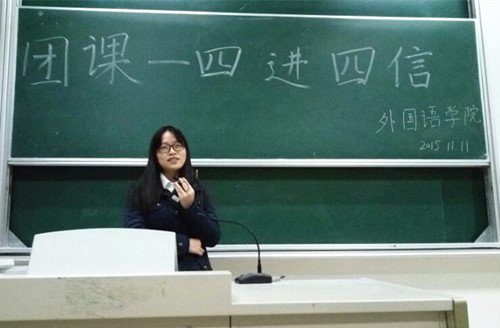 团课一四进四信
外国语学院
2015.11.11